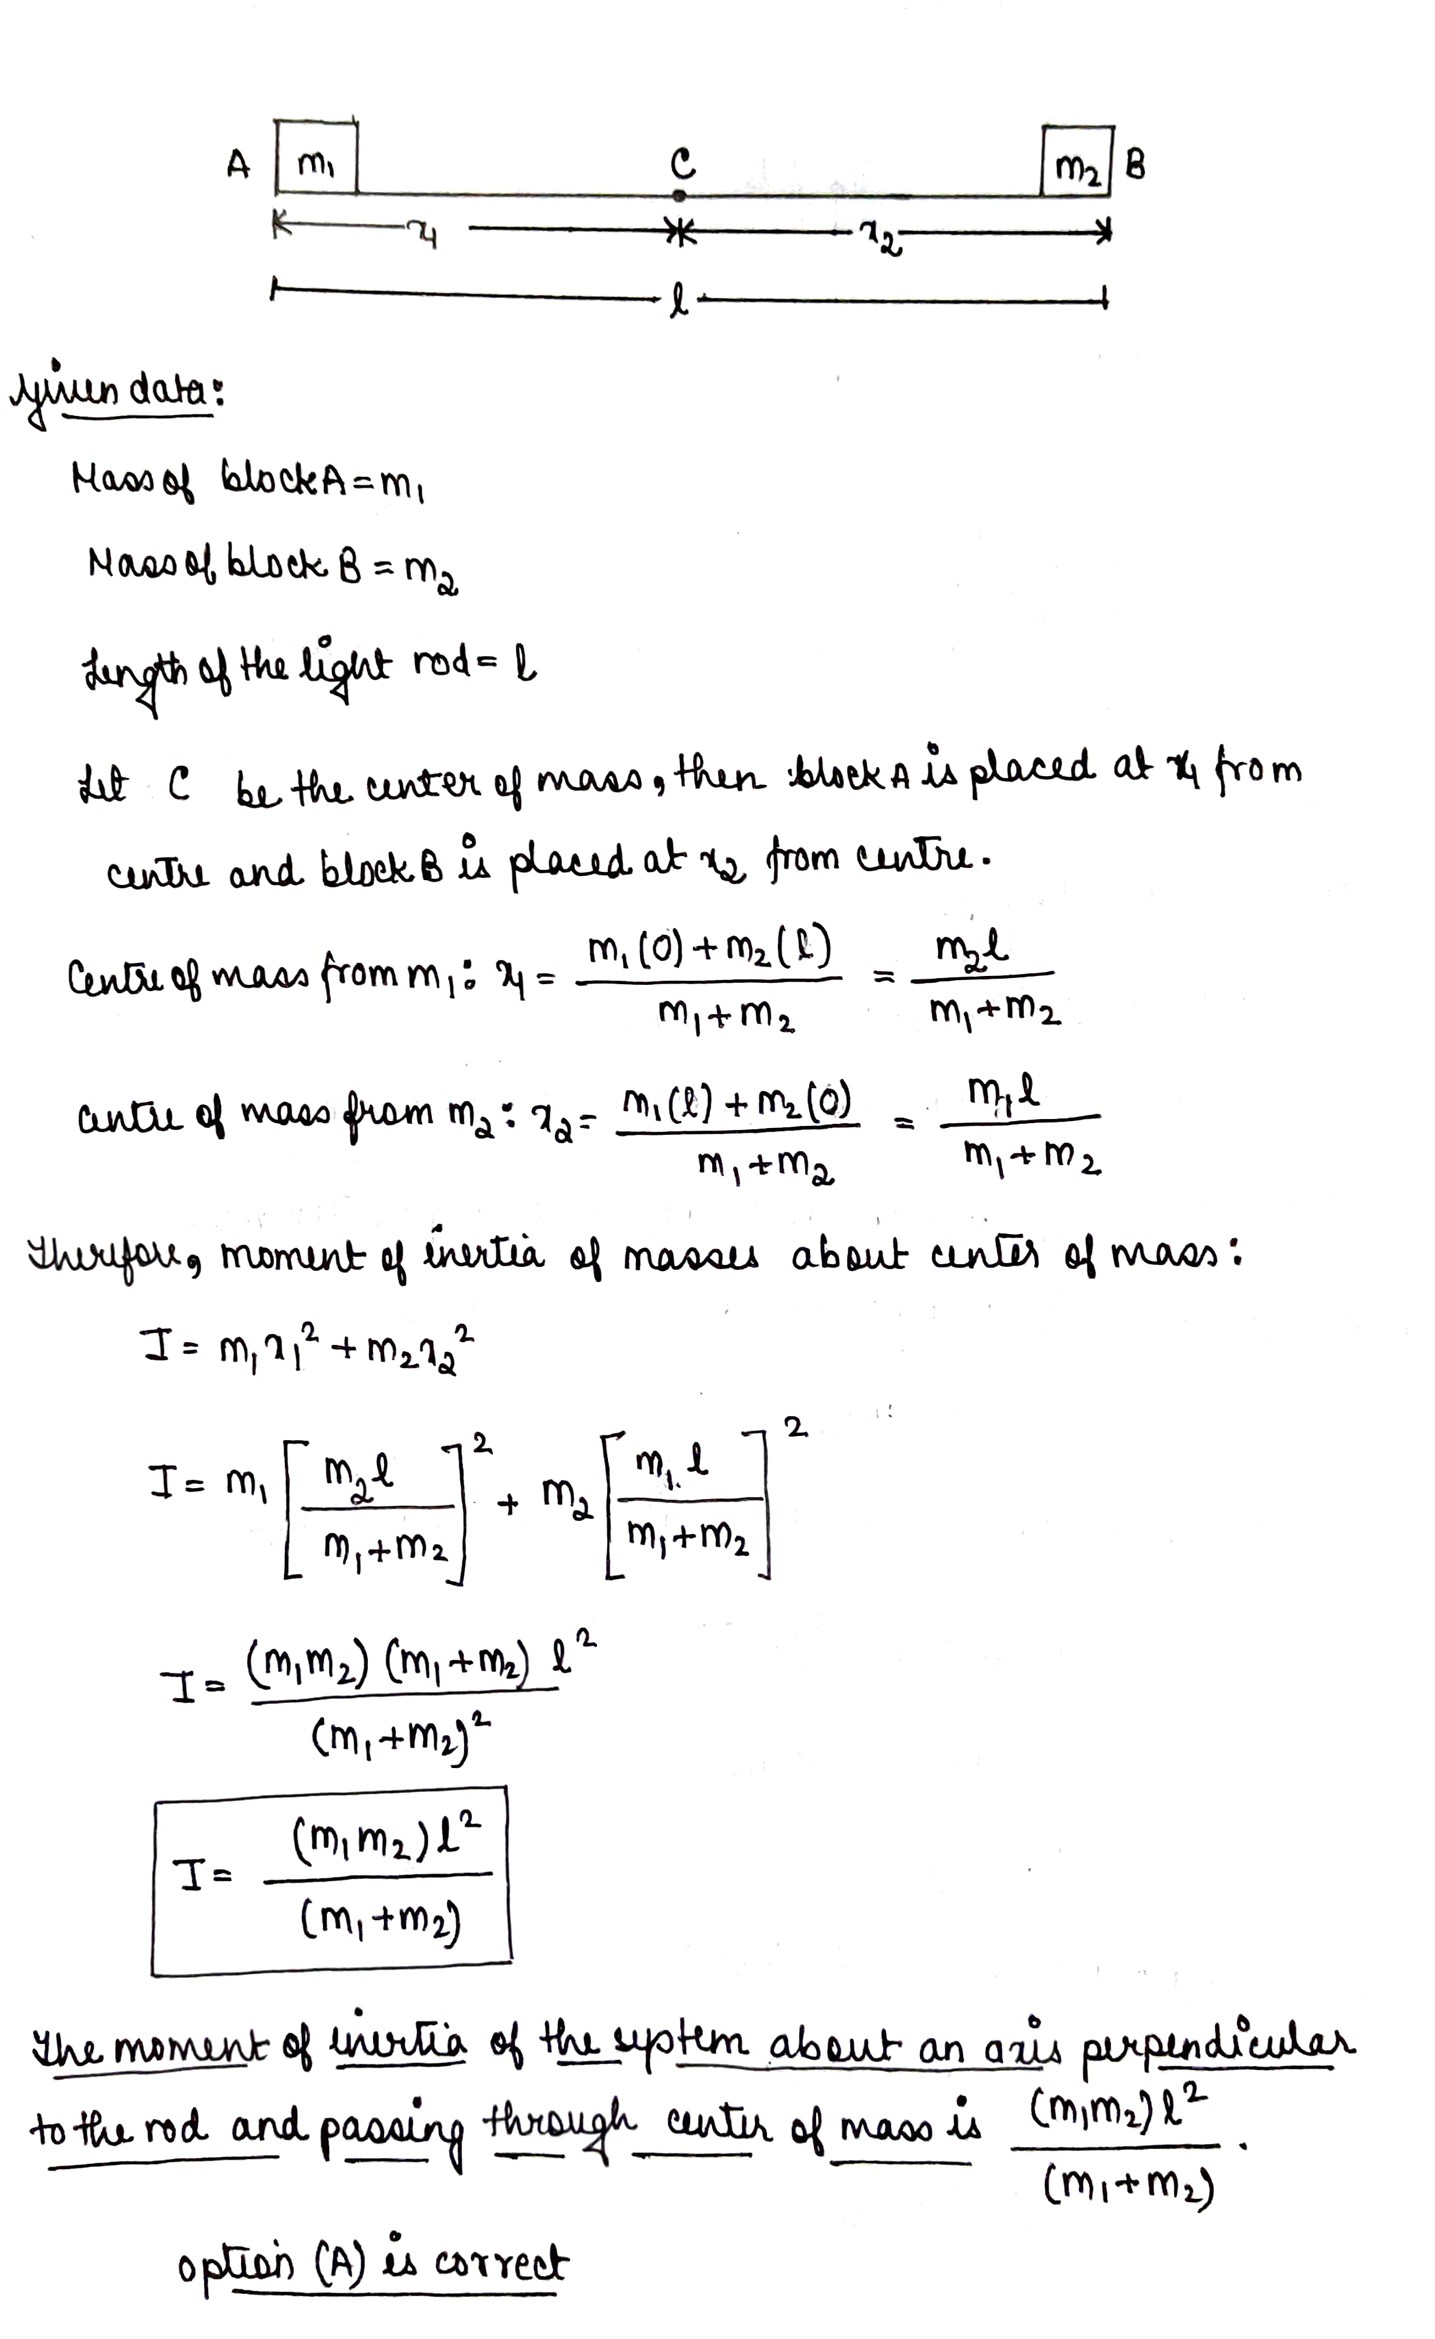 A m₁ C m₂ B
x₁ x₂
l
Given data:
Mass of block A = m₁
Mass of block B = m₂
Length of the light rod = l
Let C be the center of mass, then block A is placed at x₁ from
centre and block B is placed at x₂ from centre.
Centre of mass from m₁: x₁ = (m₁(0) + m₂(l))/(m₁+m₂) = m₂l/(m₁+m₂)
centre of mass from m₂: x₂ = (m₁(l) + m₂(0))/(m₁+m₂) = m₁l/(m₁+m₂)
Therefore, moment of inertia of masses about center of mass:
I = m₁x₁² + m₂x₂²
I = m₁ [m₂l/(m₁+m₂)]² + m₂ [m₁l/(m₁+m₂)]²
I = (m₁m₂)(m₁+m₂)l²/(m₁+m₂)²
I = (m₁m₂)l²/(m₁+m₂)
The moment of inertia of the system about an axis perpendicular
to the rod and passing through center of mass is (m₁m₂)l²/(m₁+m₂).
option (A) is correct